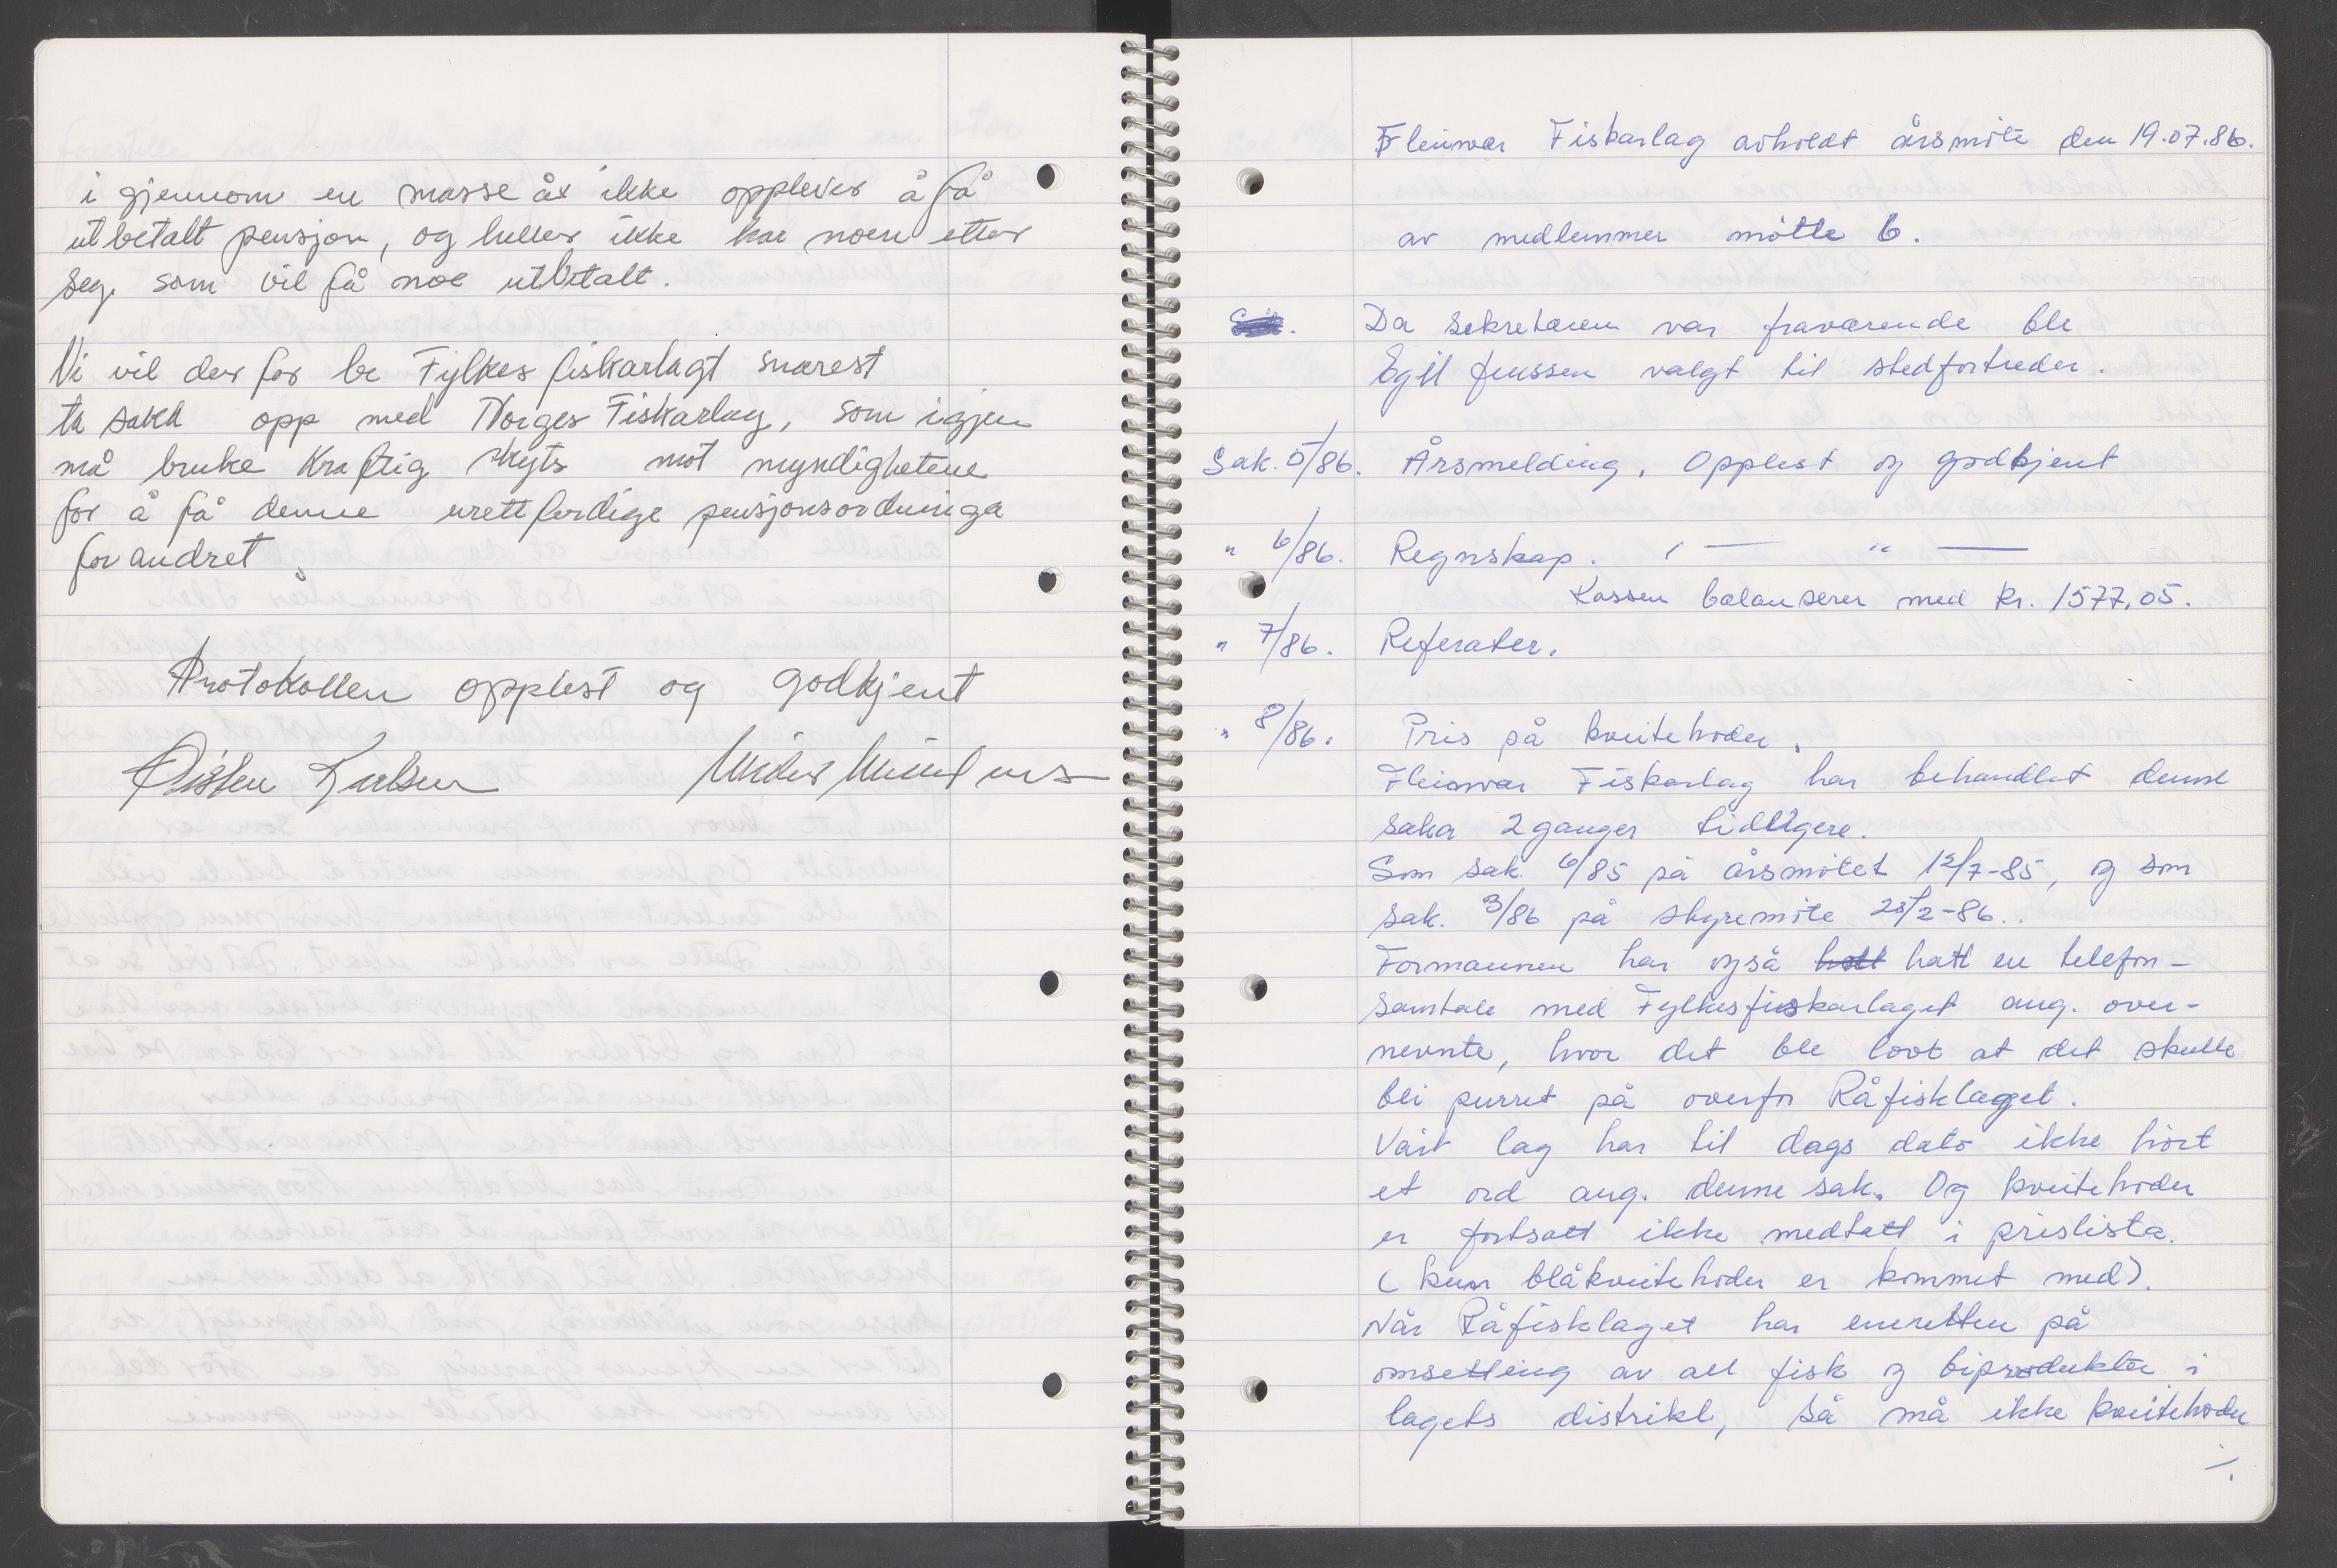 i gjennom en masse år ikke opplever å få
utbetalt pensjon, og heller ikke har noen etter
seg, som vil få noe utbetalt.
Vi vil der for be Fylkes fiskarlagt snarest
ta saka opp med Norges Fiskarlag, som igjen
må bruke Kraftig skyts mot myndighetene
for å få denne urettferdige pensjonsordninga
forandret.
Protokollen opplest og godkjent
Fleinvær Fiskarlag avholdt årsmöte den 19.07.86.
av medlemmer mötte 6.
Da sekretæren var fraværende ble
Egil Jenssen valgt til stedfortreder.
Sak. 5/86. Årsmelding. Opplest og godkjent
" 6/86. Regnskap. " — " —
Kassen balanserer med kr. 1577,05.
" 7/86. Referater.
" 8/86. Pris på kveitehoder.
Fleinvær Fiskarlag har behandlet denne
saka 2 ganger tidligere.
Som sak. 6/85 på årsmötet 12/7-85, og som
sak. 3/86 på styremöte 25/2-86..
Formannen har også hatt en telefon-
samtale med Fylkesfiskarlaget ang. over-
nevnte, hvor det ble lovt at det skulle
bli purret på overfor Råfisklaget.
Vårt lag har til dags dato ikke hört
et ord ang. denne sak. Og kveitehoder
er fortsatt ikke medtatt i prislista.
(kun blåkveitehoder er kommet med).
Når Råfisklaget har eneretten på
omsetting av all fisk og biprodukter i
lagets distrikt, så må ikke kveitehoder
./.